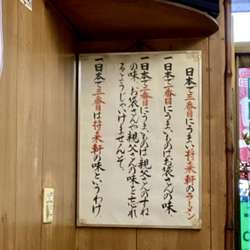 一日本で三番目にうまい将来軒のラーメン
一日本で二番目にうまいものでお袋さんの味
一日本で一番目にうまいものは親父さんのすねの味
お袋さんや親父さんの味を忘れるようじゃいけませんぞ。
一日本で三番目は将来軒の味というわけ